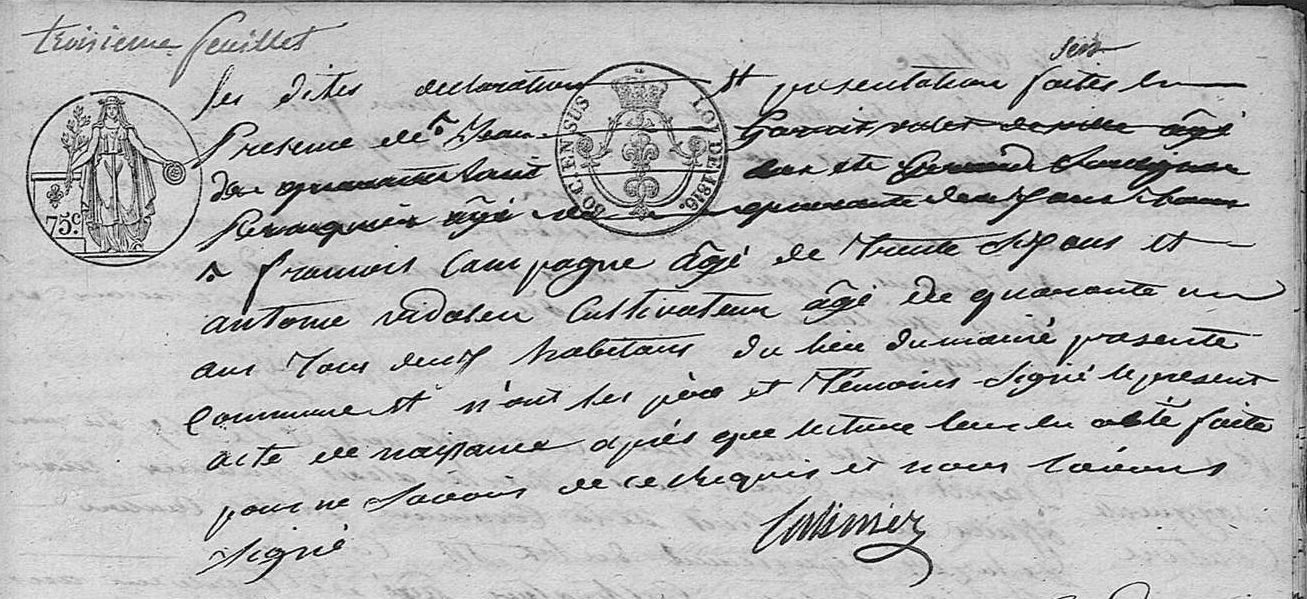 troisieme feuillet
sein
les dites declaration et presentation faites en
Presence de Jean Garrit valet de ville âgé
de quarante huit ans et
Perruquier âgé de quarante deux ans
francois Campagne âgé de Trente Six ans et
antoine vidalen Cultivateur âgé de quarante un
ans Tous deux habitans du lieu du maine presente
Commune et n'ont les père et Témoins Signé le present
acte de naissance après que lecture leur en a été faite
pour ne Savoir de ce Requis et nous l'avons
Signé
75c.
80 C. EN SUS
LOI DE 1816.